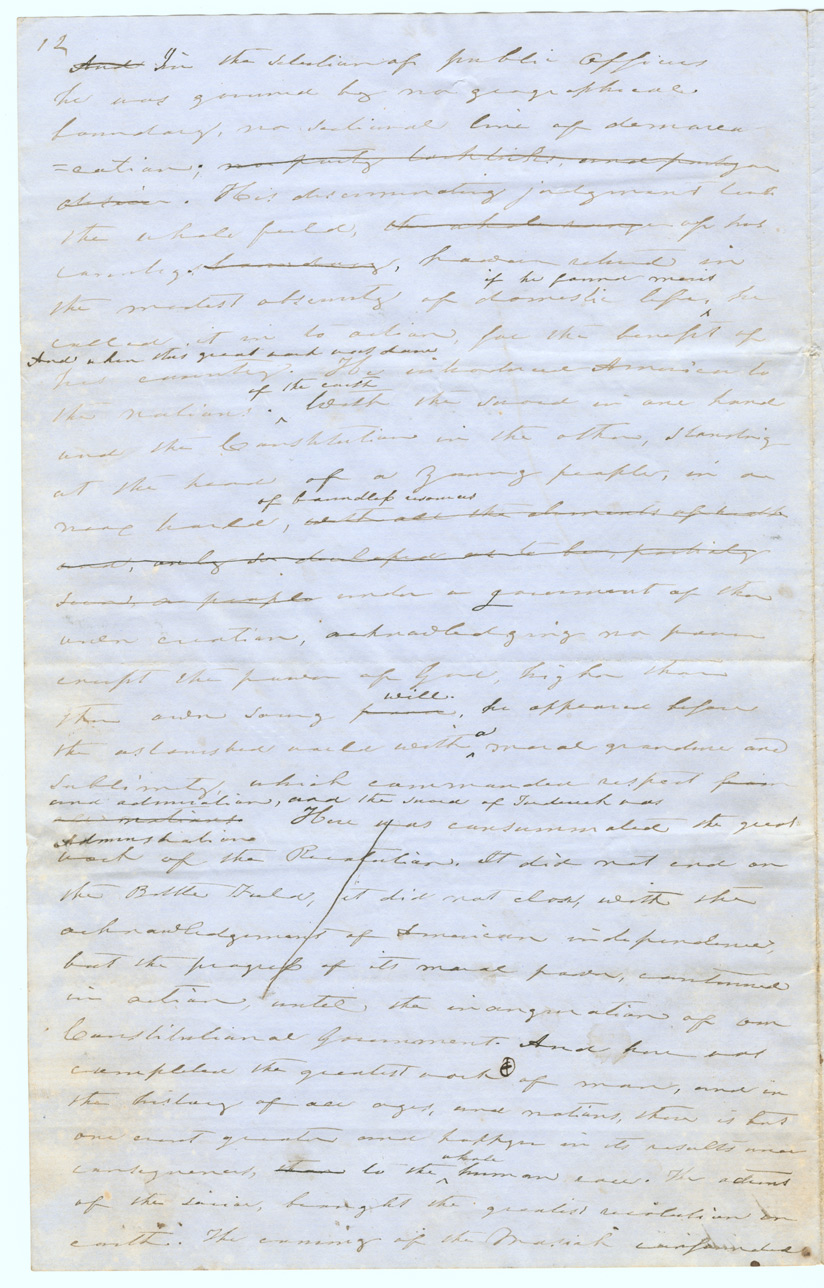 12
And In the selection of public officers
he was governed by no geographical
boundary, no sectional line of demarca
=cation; no party
. His discriminating judgment took
the whole field, the whole range of his
country's boundary, however retired in
if he found merit
the modest obscurity of domestic life, he
called it in to action, for the benefit of
And when this great work was done
his country. He introduced America to
of the earth
the nations. With the sword in one hand
and the Constitution in the other, standing
at the head of a young people, in a
of boundless resources
new world, with all the elements of
and, only so developed as to be, partially
seen, a people under a government of their
own creation, acknowledging no power
except the power of God, higher than
will.
their own sovereign power, he appeared before
a
the astonished world with moral grandeur and
sublimity, which commanded respect from
and admiration, and the sword of Frederick was
all nations Here was consummated the great
Administration
work of the Revolution. It did not end on
the Battle Field, it did not close, with the
acknowledgement of American independence,
but the progress of its moral power, continued
in action, until, the inauguration of our
Constitutional Government. And here was
completed the greatest work of man, and in
the history of all ages, and nations, there is but
one event greater and happier in its results and
whole
consequences, than to the human race. The advent
of the Savior, brought the greatest revolution on
earth. The coming of the Messiah confounded